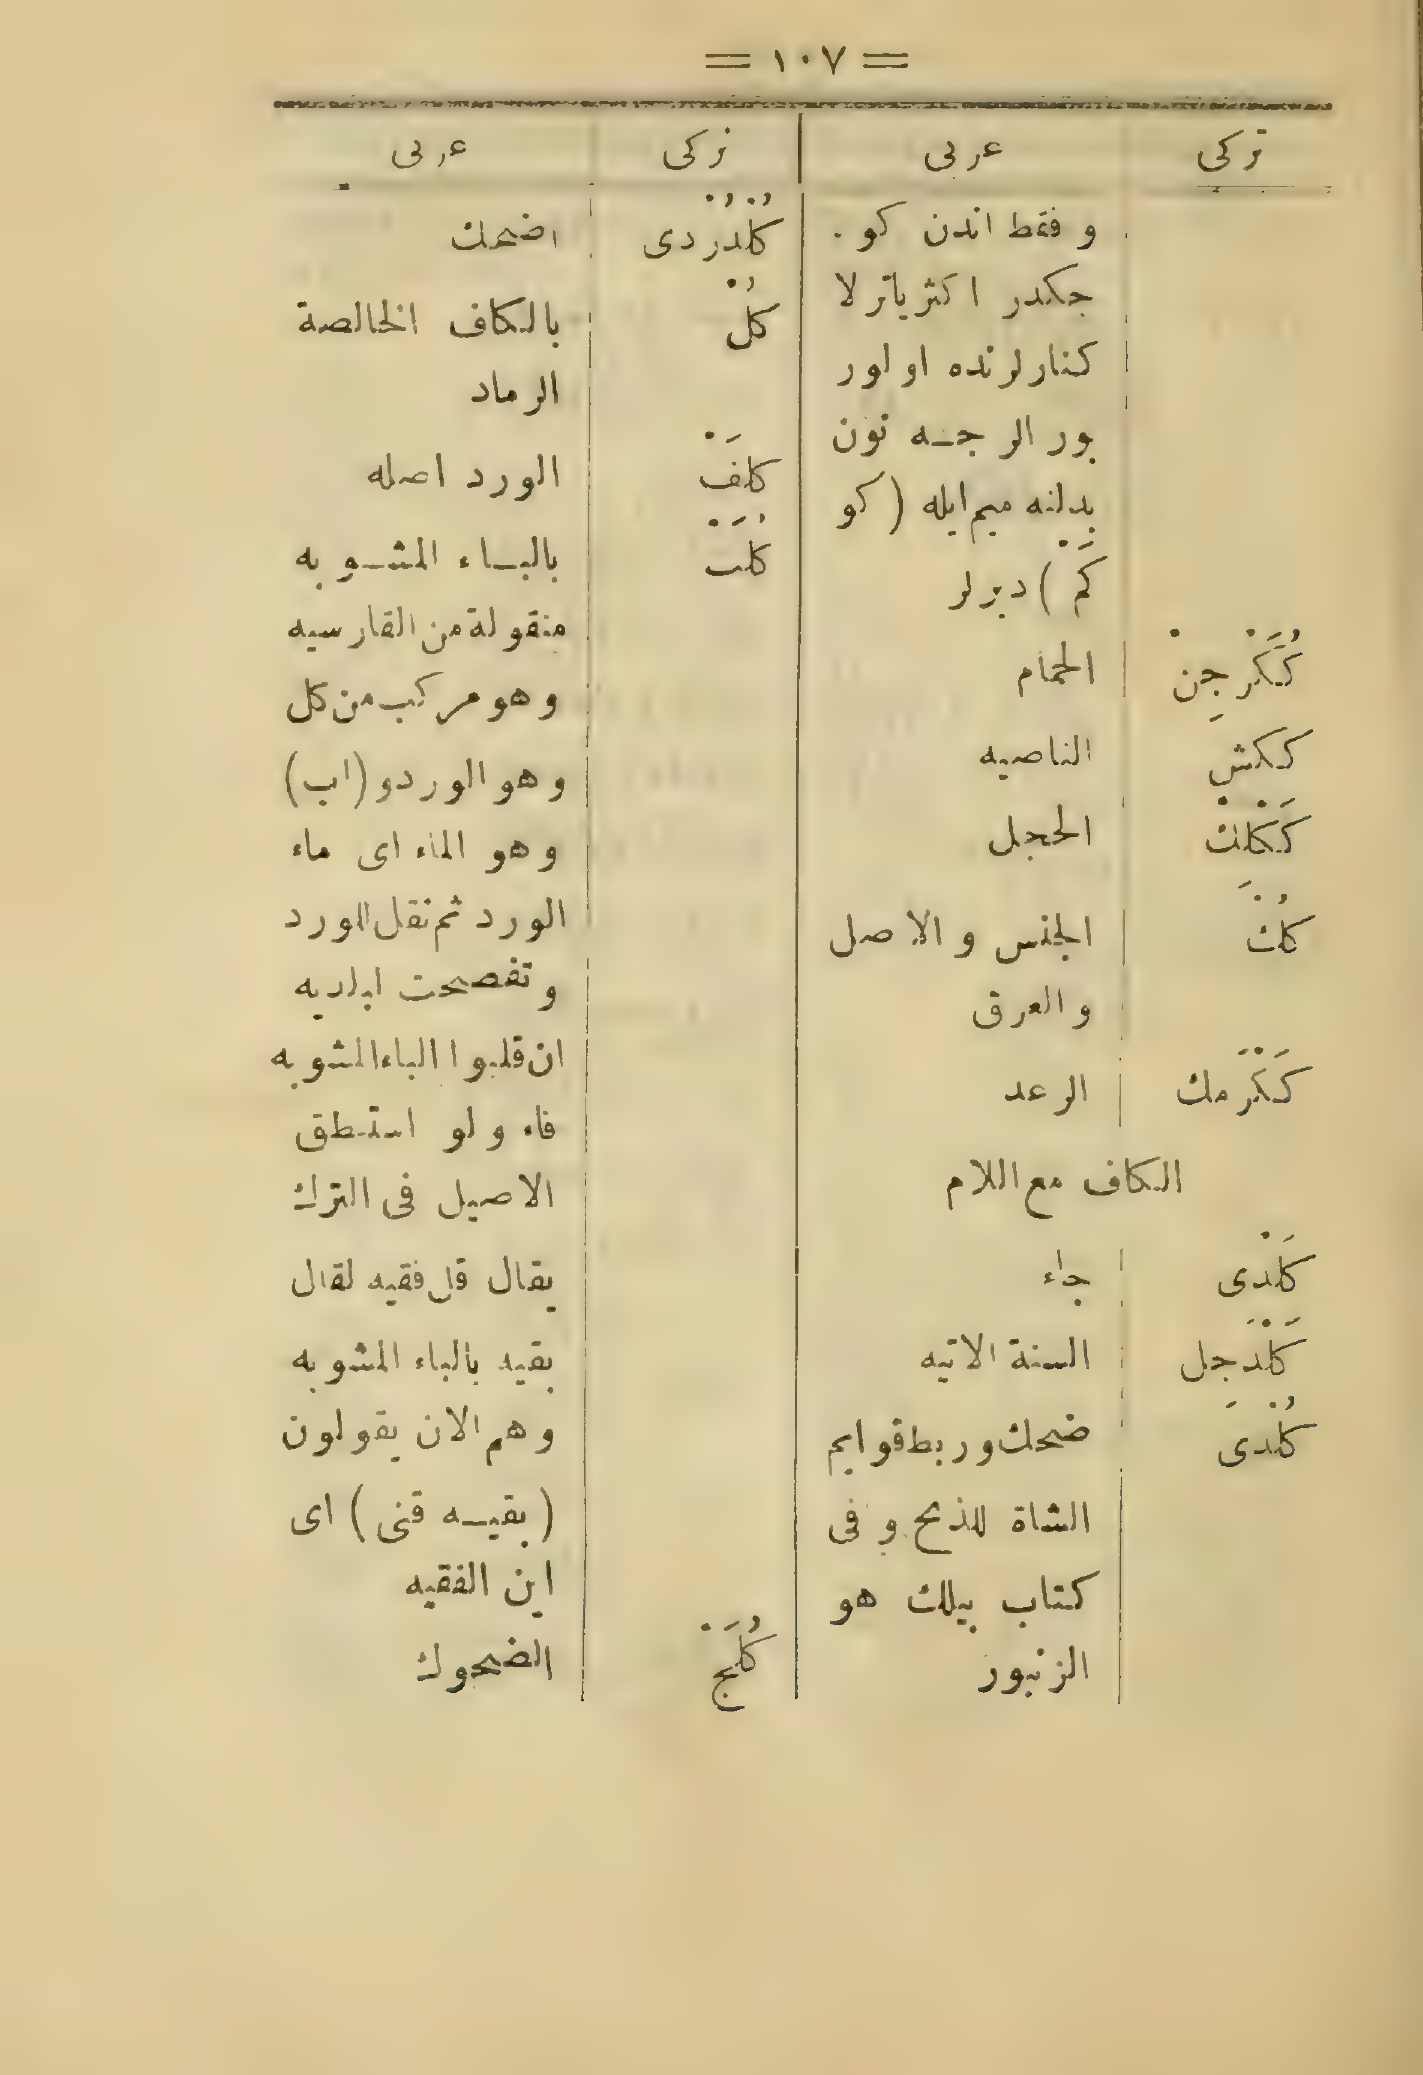 = ١٠٧ =
تركى عربى تركى عربى
و فقط اندن كو .
جكدر اكثر ياتر لا
كنارلرنده اولور
بورالرجــه نون
بدلنه ميم ايله (كو
كَمْ) ديرلر
كُكَرْجِنْ الحمام
ككش الناصيه
كَكْلِكْ الحجل
كُكْ الجنس والاصل
والعرق
كَكْرَمك الرعد
الكاف مع اللام
كَلْدى جاء
كَلْدَجَل السنة الاتيه
كُلْدى ضحك وربط قوايم
الشاة للذبح وفى
كتاب بيلك هو
الزنبور
كُلْدُرْدى اضحك
كُلْ بالكاف الخالصة
الرماد
كلَفْ الورد اصله
كُلَبْ بالبــاء المشــوبه
منقولة من الفارسيه
وهو مركب من كل
وهو الورد و (اب)
وهو الماء اى ماء
الورد ثم نقل للورد
وتفصحت البلديه
ان قلبوا الباء المشوبه
فاء ولو استنطق
الاصيل فى الترك
يقال قل فقيه لقال
بقيه بالباء المشوبه
وهم الان يقولون
(بقيــه قنى) اى
اين الفقيه
كُلَجْ الضحوك